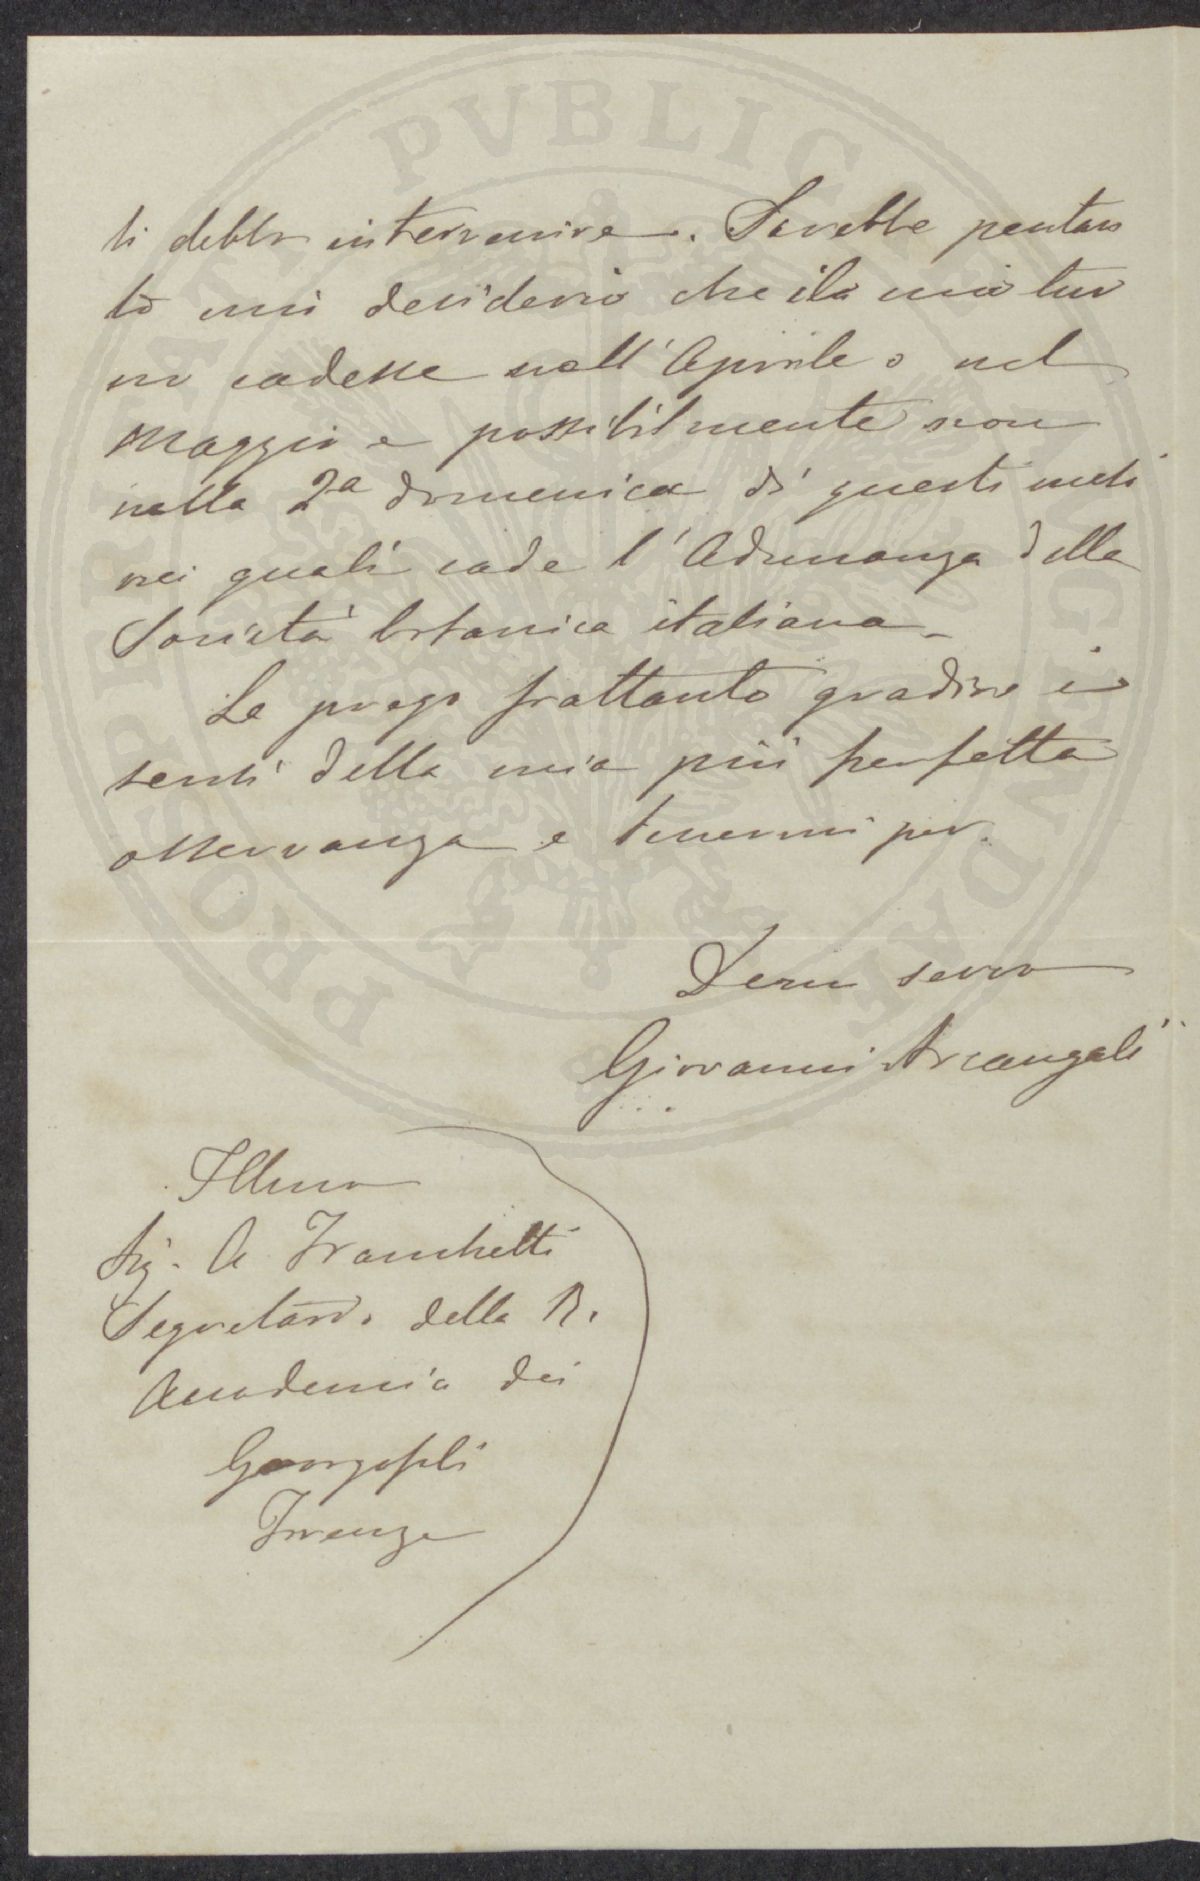 ti debbo intervenire. Sarebbe pertan
to mio desiderio che il mio tur
no cadesse nell'Aprile o nel
Maggio e possibilmente non
nella 2a domenica di questi mesi
nei quali cade l'Adunanza della
Società botanica italiana.
Le prego frattanto gradire i
sensi della mia più perfetta
osservanza e tenermi per.
Devmo servo
Giovanni Arcangeli
Illmo
Sig. A Franchetti
Segretario della R.
Accademia dei
Georgofili
Firenze
PROSPERITATI PVBLICAE AVGENDAE